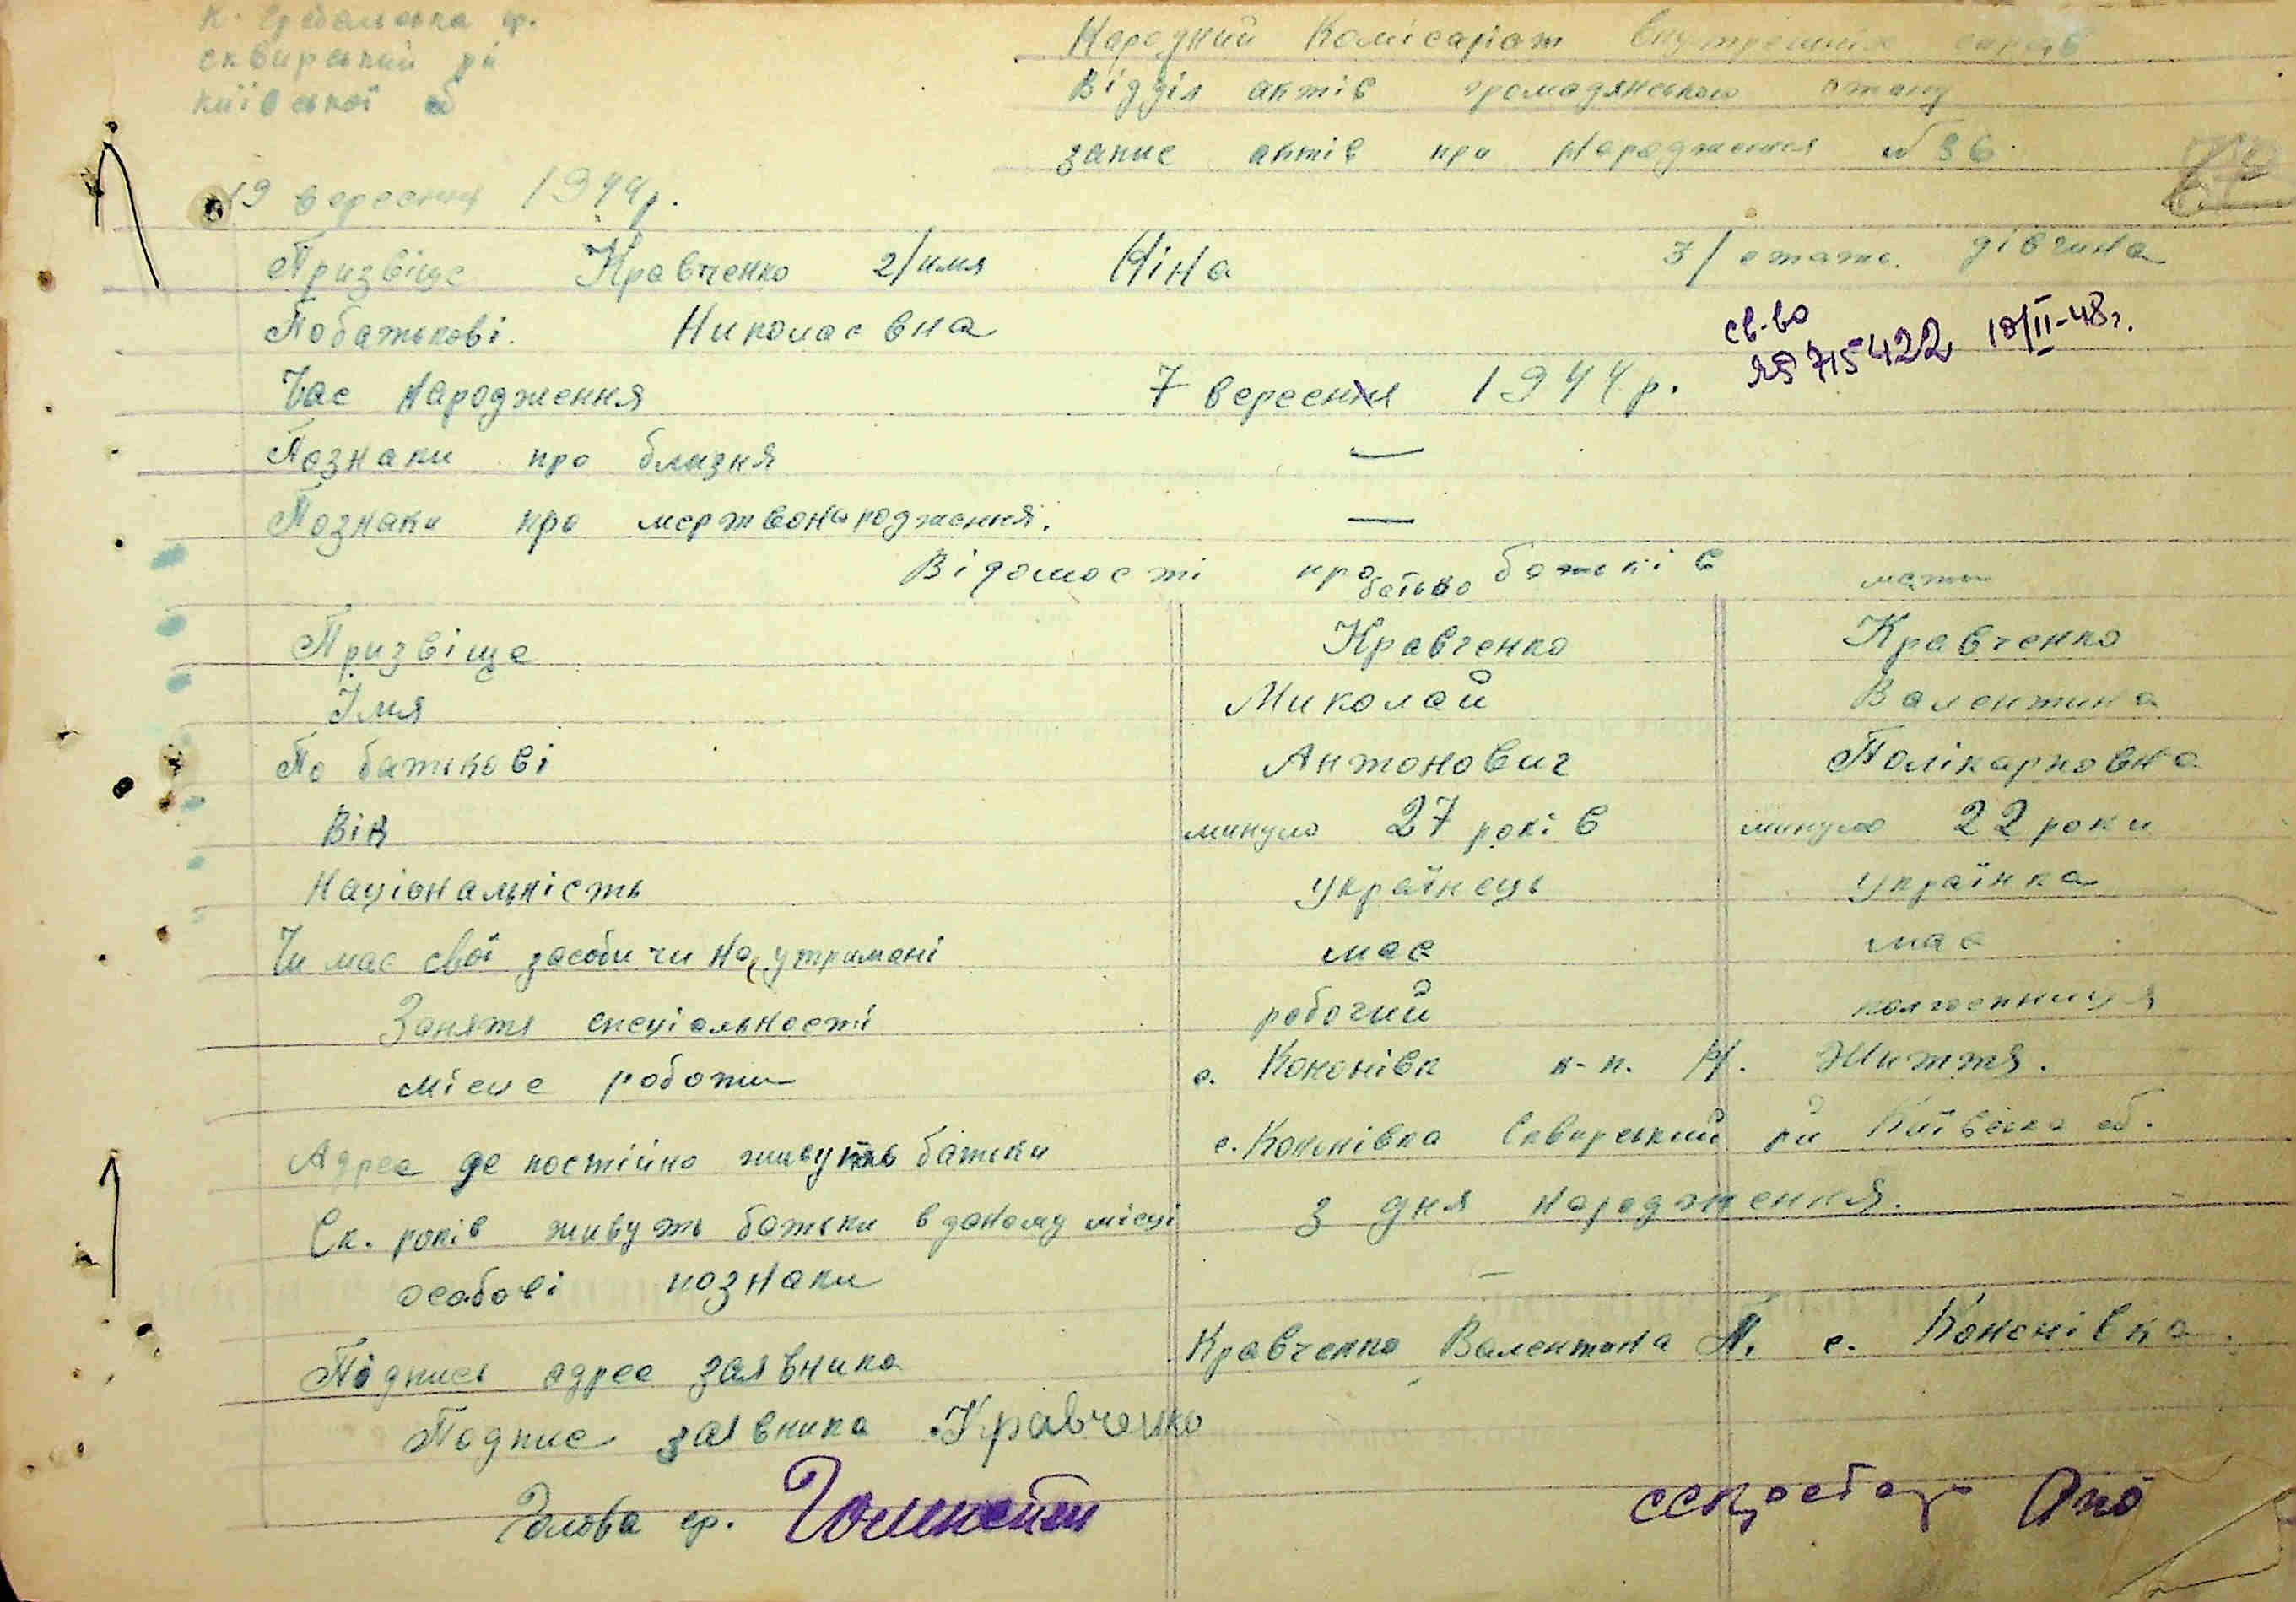 сквирський р-н
київської об
Народний Комісаріат Внутрешніх справ
Відділ актів громадянського стану
запис актів про Народження № 36
19 вересня 1944 р.
Призвіще Кравченко 2/имя Ніна 3/стать. дівчина
Побатькові. Николаевна
св-во
715422 18/II-48 г.
Час Народження 7 вересня 1944 р.
Познаки про близня —
Познаки про мертвонародження. —
Відомості про батьків
батько мати
Призвіще Кравченко Кравченко
Імя Миколай Валентина
По батькові Антонович Полікарповна
Вік минуло 27 років минуло 22 роки
Національність українець українка
Чи має свої засоби чи на утримані має має
Заняття спеціальності робочий колгоспниця
місце роботи с. Кононівка к-п. Н. Життя.
Адрес де постійно живуть батьки с. Кононівка Сквирський р-н Київська об.
Ск. років живуть батьки в даному місці з дня народження.
особові познаки —
Підпись адрес заявника Кравченко Валентина П. с. Кононівка.
Подпис заявника Кравченко
Голова ср. секретар